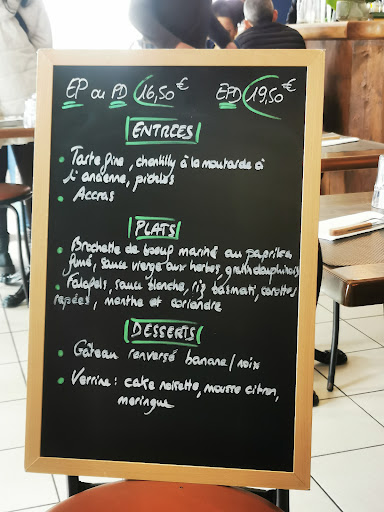 EP ou PD 16,50€ EPD 19,50€
ENTREES
• Tarte fine, chantilly à la moutarde à
l'ancienne, pickles
• Accras
PLATS
• Brochette de boeuf mariné au paprika
fumé, sauce vierge aux herbes, gratin dauphinois
• Falafels, sauce blanche, riz basmati, carottes
rapées, menthe et coriandre
DESSERTS
• Gâteau renversé banane/noix
• Verrine : cake noisette, mousse citron,
meringue